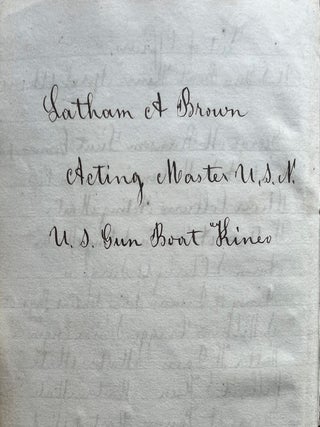 Latham A Brown
Acting Master U.S.N.
U.S. Gun Boat "Kineo